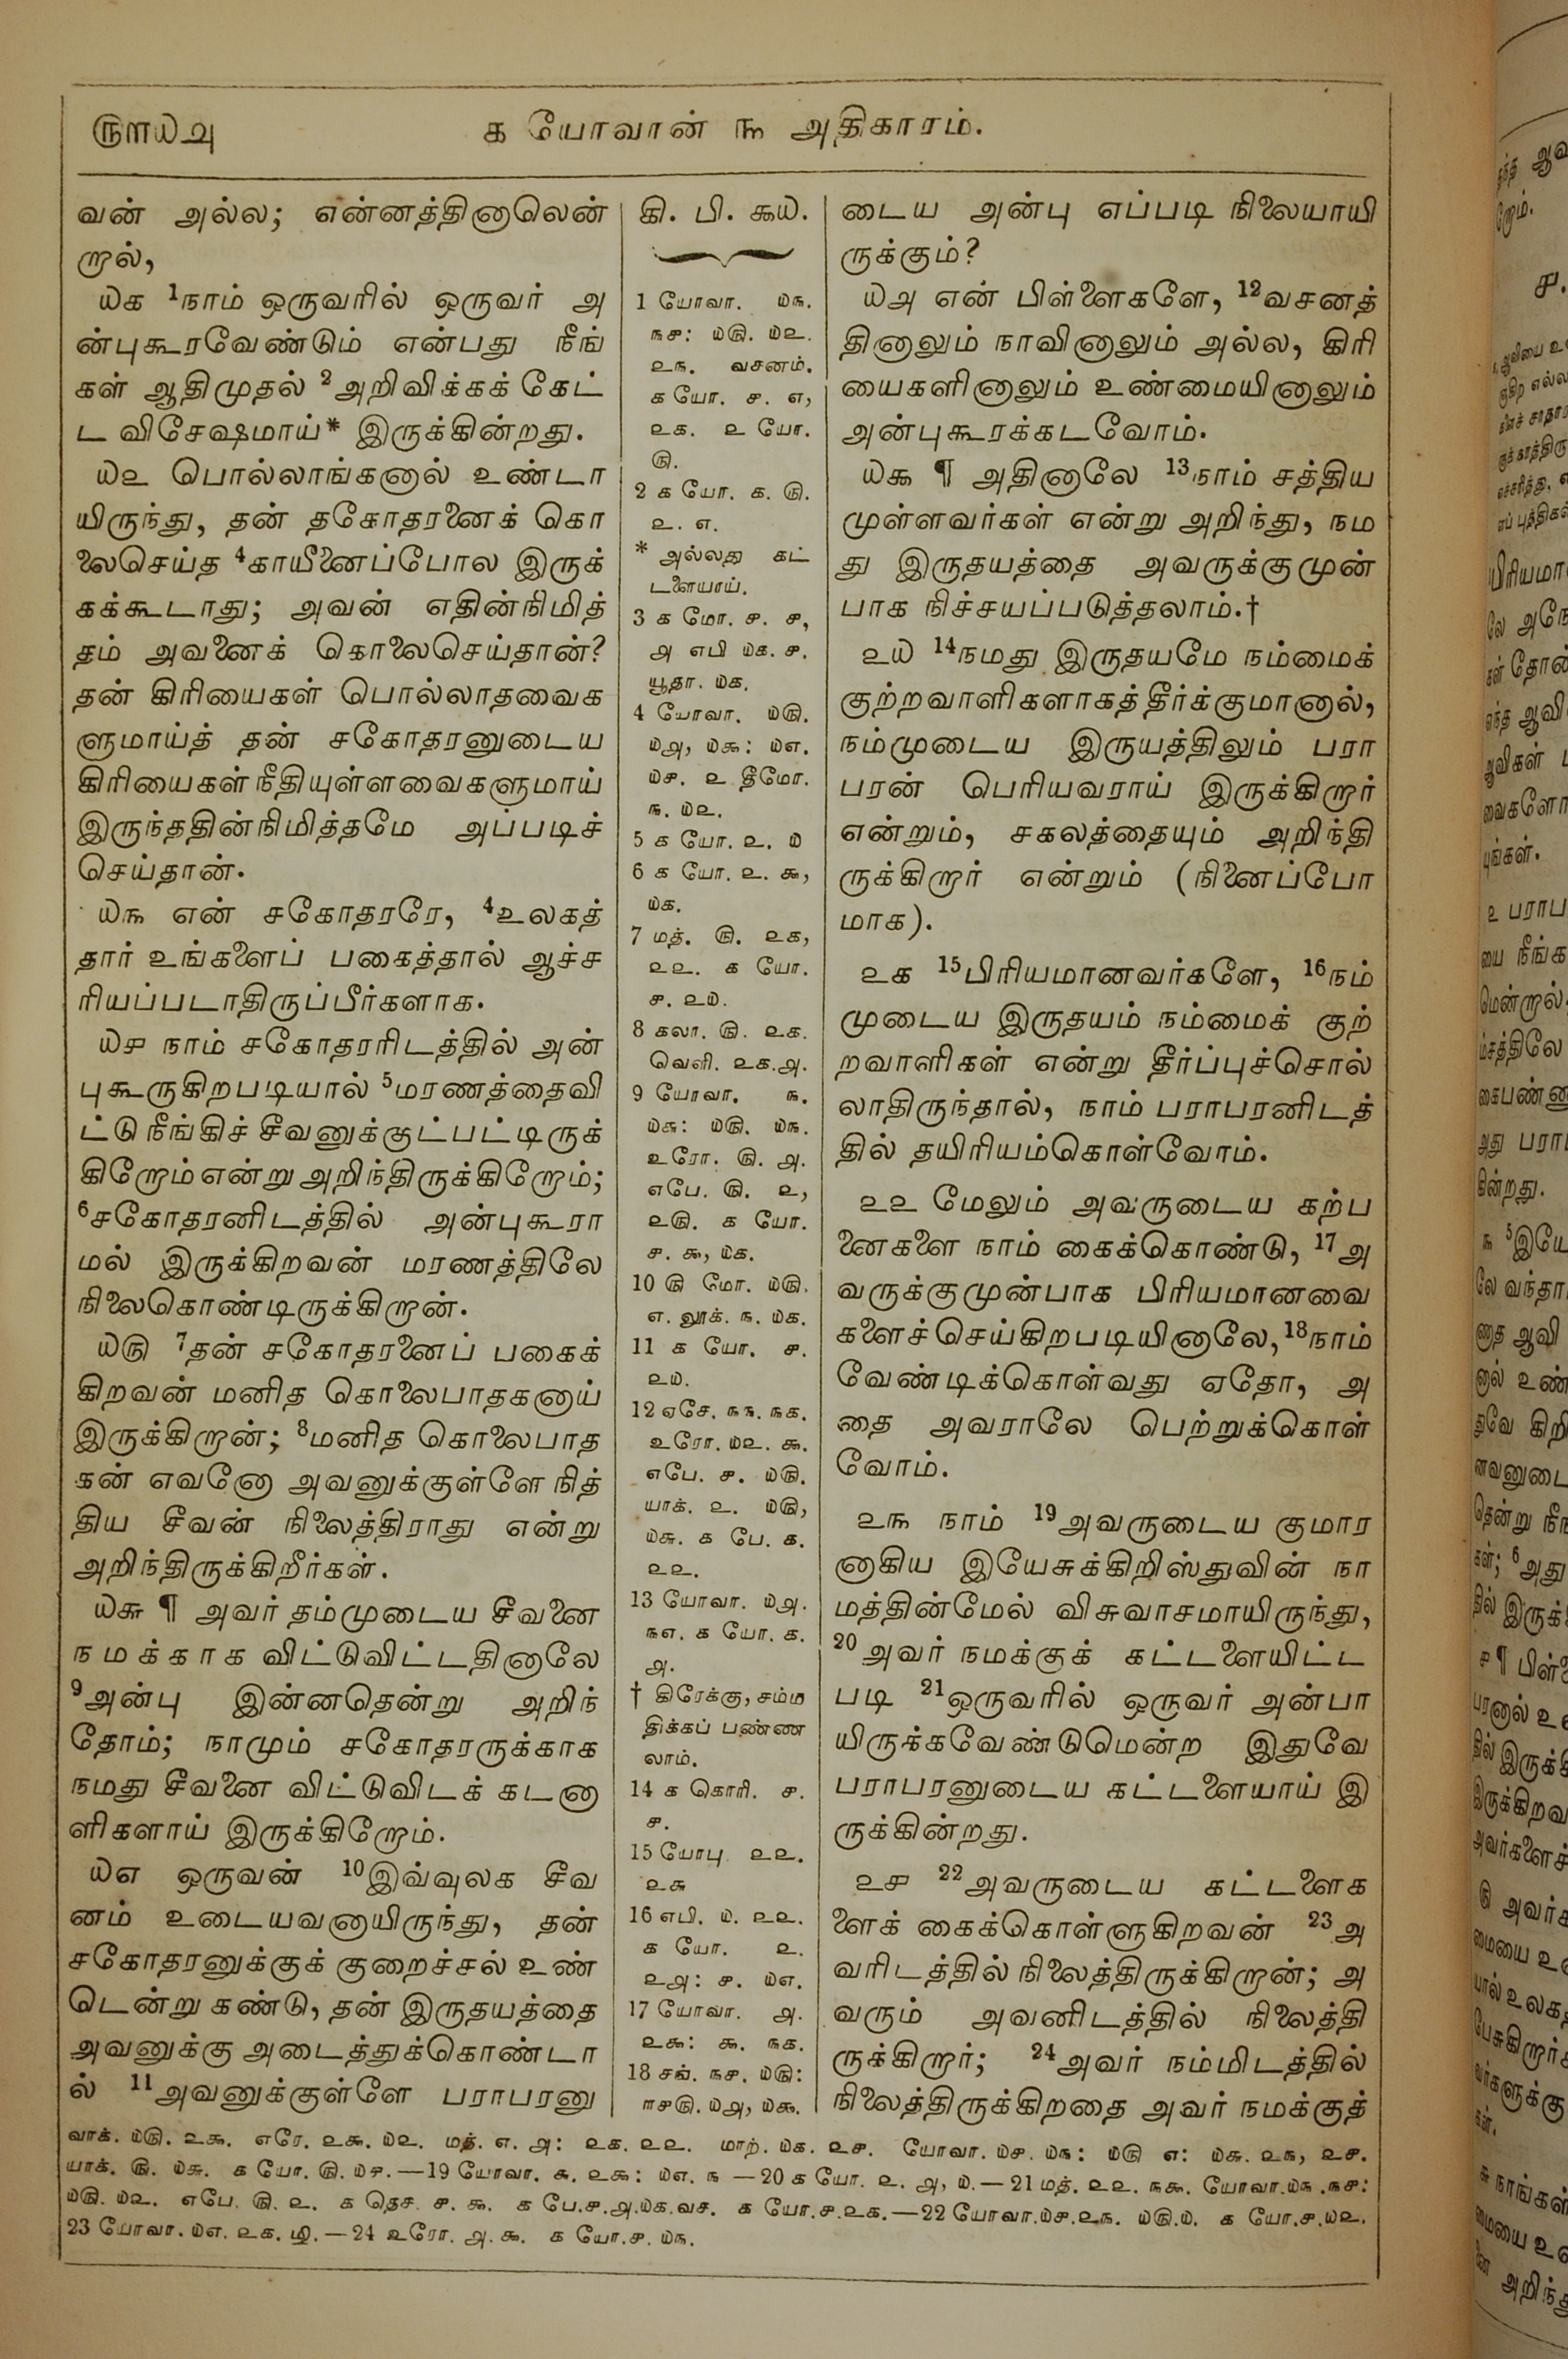 ௫௱௰௮ க யோவான் ௩ அதிகாரம்.
வன் அல்ல; என்னத்தினாலென்
றால்,
௰௧ 1நாம் ஒருவரில் ஒருவர் அ
ன்புகூரவேண்டும் என்பது நீங்
கள் ஆதிமுதல் 2அறிவிக்கக் கேட்
ட விசேஷமாய்* இருக்கின்றது.
௰௨ பொல்லாங்கனால் உண்டா
யிருந்து, தன் தகோதரனைக் கொ
லைசெய்த 4காயீனைப்போல இருக்
கக்கூடாது; அவன் எதின்நிமித்
தம் அவனைக் கொலைசெய்தான்?
தன் கிரியைகள் பொல்லாதவைக
ளுமாய்த் தன் சகோதரனுடைய
கிரியைகள் நீதியுள்ளவைகளுமாய்
இருந்ததின்நிமித்தமே அப்படிச்
செய்தான்.
௰௩ என் சகோதரரே, 4உலகத்
தார் உங்களைப் பகைத்தால் ஆச்ச
ரியப்படாதிருப்பீர்களாக.
௰௪ நாம் சகோதரரிடத்தில் அன்
புகூருகிறபடியால் 5மரணத்தைவி
ட்டு நீங்கிச் சீவனுக்குட்பட்டிருக்
கிறோம் என்று அறிந்திருக்கிறோம்;
6சகோதரனிடத்தில் அன்புகூரா
மல் இருக்கிறவன் மரணத்திலே
நிலைகொண்டிருக்கிறான்.
௰௫ 7தன் சகோதரனைப் பகைக்
கிறவன் மனித கொலைபாதகனாய்
இருக்கிறான்; 8மனித கொலைபாத
கன் எவனோ அவனுக்குள்ளே நித்
திய சீவன் நிலைத்திராது என்று
அறிந்திருக்கிறீர்கள்.
௰௬ ¶ அவர் தம்முடைய சீவனை
நமக்காக விட்டுவிட்டதினாலே
9அன்பு இன்னதென்று அறிந்
தோம்; நாமும் சகோதரருக்காக
நமது சீவனை விட்டுவிடக் கடனா
ளிகளாய் இருக்கிறோம்.
௰௭ ஒருவன் 10இவ்வுலக சீவ
னம் உடையவனாயிருந்து, தன்
சகோதரனுக்குக் குறைச்சல் உண்
டென்று கண்டு, தன் இருதயத்தை
அவனுக்கு அடைத்துக்கொண்டா
ல் 11அவனுக்குள்ளே பராபரனு
கி. பி. ௯௰.
1 யோவா. ௰௩.
௩௪: ௰௫. ௰௨.
௨௩. வசனம்.
௧ யோ. ௪. ௭,
௨௧. ௨ யோ.
௫.
2 ௧ யோ. ௧. ௫.
௨. ௭.
* அல்லது கட்
டளையாய்.
3 ௧ மோ. ௪. ௪,
௮ எபி ௰௧. ௪.
யூதா. ௰௧.
4 யோவா. ௰௫.
௰௮, ௰௯: ௰௭.
௰௪. ௨ தீமோ.
௩. ௰௨.
5 ௧ யோ. ௨. ௰
6 ௧ யோ. ௨. ௯,
௰௧.
7 மத். ௫. ௨௧,
௨௨. ௧ யோ.
௪. ௨௰.
8 கலா. ௫. ௨௧.
வெளி. ௨௧.௮.
9 யோவா. ௩.
௰௬: ௰௫. ௰௩.
உரோ. ௫. ௮.
எபே. ௫. ௨,
௨௫. ௧ யோ.
௪. ௯, ௰௧.
10 ௫ மோ. ௰௫.
௭. லூக். ௩. ௰௧.
11 ௧ யோ. ௪.
௨௰.
12 ஏசே. ௩௩. ௩௧.
உரோ. ௰௨. ௯.
எபே. ௪. ௰௫.
யாக். ௨. ௰௫,
௰௬. ௧ பே. ௧.
௨௨.
13 யோவா. ௰௮.
௩௭. ௧ யோ. ௧.
௮.
† கிரேக்கு, சம்ம
திக்கப் பண்ண
லாம்.
14 ௧ கொரி. ௪.
௪.
15 யோபு ௨௨.
௨௬
16 எபி. ௰. ௨௨.
௧ யோ. ௨.
௨௮: ௪. ௰௭.
17 யோவா. ௮.
௨௯: ௯. ௩௧.
18 சங். ௩௪. ௰௫:
௱௪௫. ௰௮, ௰௯.
டைய அன்பு எப்படி நிலையாயி
ருக்கும்?
௰௮ என் பிள்ளைகளே, 12வசனத்
தினாலும் நாவினாலும் அல்ல, கிரி
யைகளினாலும் உண்மையினாலும்
அன்புகூரக்கடவோம்.
௰௯ ¶ அதினாலே 13நாம் சத்திய
முள்ளவர்கள் என்று அறிந்து, நம
து இருதயத்தை அவருக்குமுன்
பாக நிச்சயப்படுத்தலாம்.†
௨௰ 14நமது இருதயமே நம்மைக்
குற்றவாளிகளாகத் தீர்க்குமானால்,
நம்முடைய இருயத்திலும் பரா
பரன் பெரியவராய் இருக்கிறார்
என்றும், சகலத்தையும் அறிந்தி
ருக்கிறார் என்றும் (நினைப்போ
மாக).
௨௧ 15பிரியமானவர்களே, 16நம்
முடைய இருதயம் நம்மைக் குற்
றவாளிகள் என்று தீர்ப்புச்சொல்
லாதிருந்தால், நாம் பராபரனிடத்
தில் தயிரியம்கொள்வோம்.
௨௨ மேலும் அவருடைய கற்ப
னைகளை நாம் கைக்கொண்டு, 17அ
வருக்குமுன்பாக பிரியமானவை
களைச் செய்கிறபடியினாலே, 18நாம்
வேண்டிக்கொள்வது ஏதோ, அ
தை அவராலே பெற்றுக்கொள்
வோம்.
௨௩ நாம் 19அவருடைய குமார
னாகிய இயேசுக்கிறிஸ்துவின் நா
மத்தின்மேல் விசுவாசமாயிருந்து,
20அவர் நமக்குக் கட்டளையிட்ட
படி 21ஒருவரில் ஒருவர் அன்பா
யிருக்கவேண்டுமென்ற இதுவே
பராபரனுடைய கட்டளையாய் இ
ருக்கின்றது.
௨௪ 22அவருடைய கட்டளைக
ளைக் கைக்கொள்ளுகிறவன் 23அ
வரிடத்தில் நிலைத்திருக்கிறான்; அ
வரும் அவனிடத்தில் நிலைத்தி
ருக்கிறார்; 24அவர் நம்மிடத்தில்
நிலைத்திருக்கிறதை அவர் நமக்குத்
வாக். ௰௫. ௨௯. எரே. ௨௯. ௰௨. மத். ௭. ௮: ௨௧. ௨௨. மாற். ௰௧. ௨௪. யோவா. ௰௪. ௰௩: ௰௫ ௭: ௰௬. ௨௩, ௨௪.
யாக். ௫. ௰௬. ௧ யோ. ௫. ௰௪.—19 யோவா. ௬. ௨௯: ௰௭. ௩ —20 ௧ யோ. ௨. ௮, ௰.—21 மத். ௨௨. ௩௯. யோவா.௰௩.௩௪:
௰௫. ௰௨. எபே. ௫. ௨. ௧ தெச. ௪. ௯. ௧ பே.௪.௮.௰௧.வச. ௧ யோ.௪.௨௧.—22 யோவா.௰௪.௨௩. ௰௫.௰. ௧ யோ.௪.௰௨.
23 யோவா. ௰௭. ௨௧. ழி.—24 உரோ. ௮. ௯. ௧ யோ.௪. ௰௩.